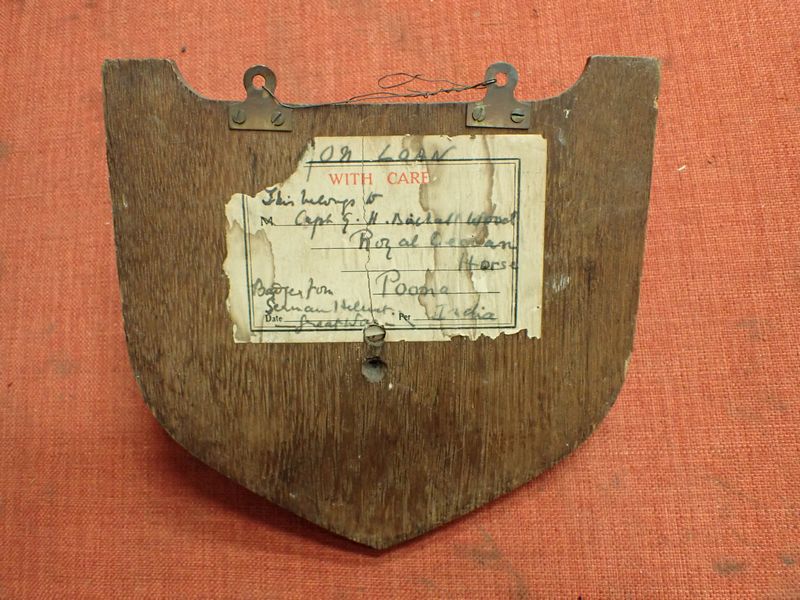 ON LOAN
WITH CARE
This belongs to
M Capt G. H. Wood
Royal Deccan
Horse
Badge from Poona
German Helmet.
Date Great War Per India